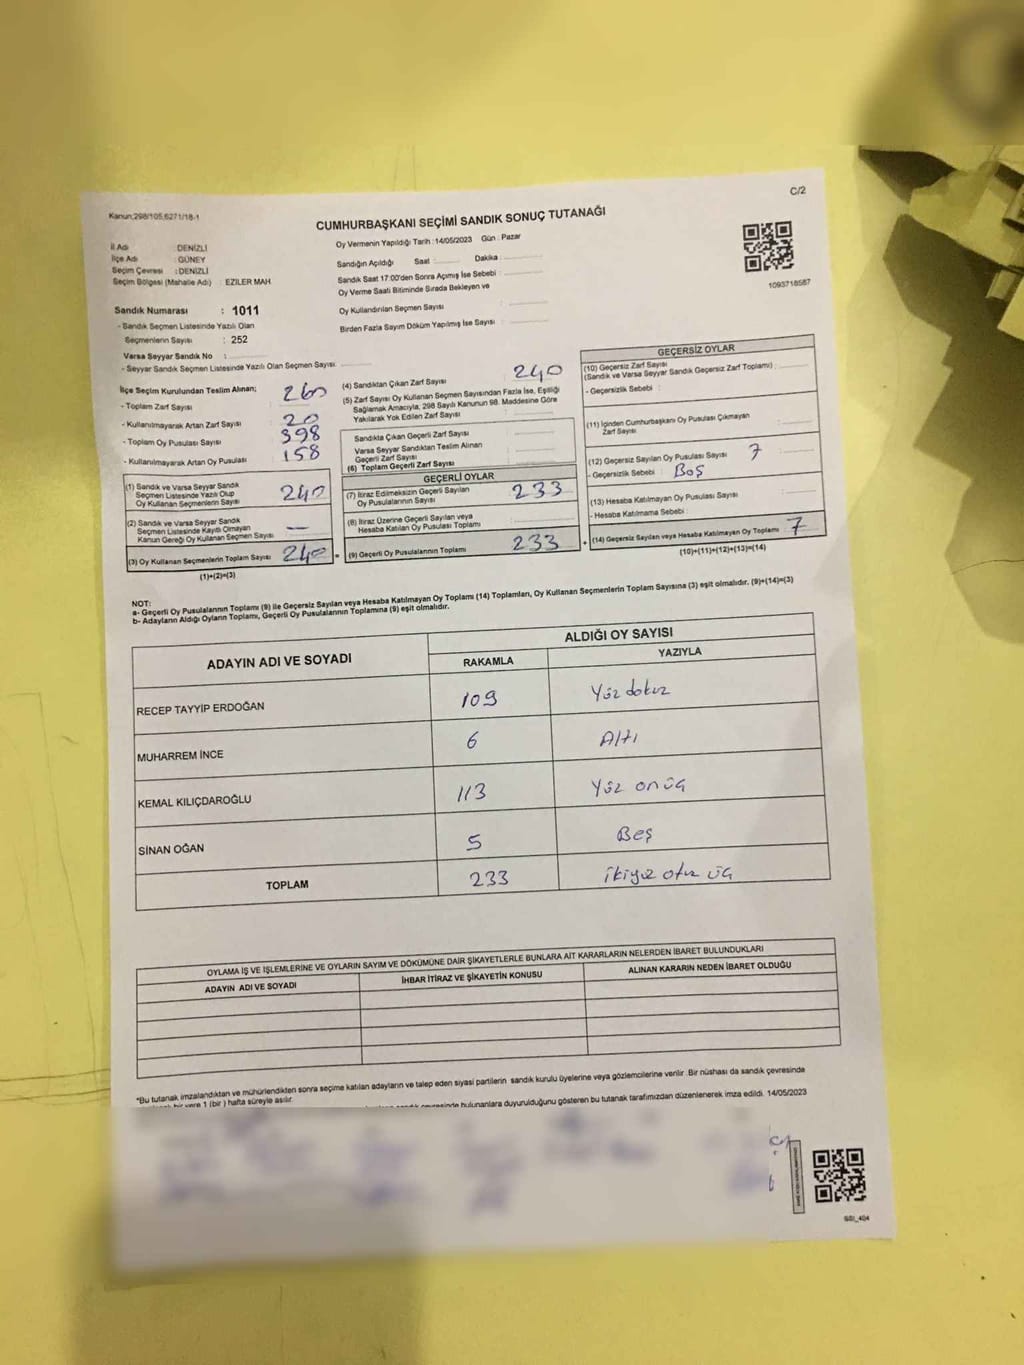 Kanun;298/105,6271/18-1
C/2
CUMHURBAŞKANI SEÇİMİ SANDIK SONUÇ TUTANAĞI
İl Adı : DENİZLİ
İlçe Adı : GÜNEY
Seçim Çevresi : DENİZLİ
Seçim Bölgesi (Mahalle Adı) : EZİLER MAH
Oy Vermenin Yapıldığı Tarih :14/05/2023 Gün : Pazar
Sandığın Açıldığı Saat : Dakika :
Sandık Saat 17:00'den Sonra Açımış İse Sebebi :
Oy Verme Saati Bitiminde Sırada Bekleyen ve
Oy Kullandırılan Seçmen Sayısı :
Birden Fazla Sayım Döküm Yapılmış İse Sayısı :
1093718587
Sandık Numarası : 1011
- Sandık Seçmen Listesinde Yazılı Olan
Seçmenlerin Sayısı : 252
Varsa Seyyar Sandık No :
- Seyyar Sandık Seçmen Listesinde Yazılı Olan Seçmen Sayısı :
İlçe Seçim Kurulundan Teslim Alınan;
- Toplam Zarf Sayısı 260
- Kullanılmayarak Artan Zarf Sayısı 20
- Toplam Oy Pusulası Sayısı 398
- Kullanılmayarak Artan Oy Pusulası 158
(1) Sandık ve Varsa Seyyar Sandık
Seçmen Listesinde Yazılı Olup
Oy Kullanan Seçmenlerin Sayısı 240
(2) Sandık ve Varsa Seyyar Sandık
Seçmen Listesinde Kayıtlı Olmayan
Kanun Gereği Oy Kullanan Seçmen Sayısı —
(3) Oy Kullanan Seçmenlerin Toplam Sayısı 240 =
(1)+(2)=(3)
(4) Sandıktan Çıkan Zarf Sayısı 240
(5) Zarf Sayısı Oy Kullanan Seçmen Sayısından Fazla İse, Eşitliği
Sağlamak Amacıyla, 298 Sayılı Kanunun 98. Maddesine Göre
Yakılarak Yok Edilen Zarf Sayısı :
Sandıkta Çıkan Geçerli Zarf Sayısı :
Varsa Seyyar Sandıktan Teslim Alınan
Geçerli Zarf Sayısı :
(6) Toplam Geçerli Zarf Sayısı :
GEÇERLİ OYLAR
(7) İtiraz Edilmeksizin Geçerli Sayılan
Oy Pusulalarının Sayısı 233
(8) İtiraz Üzerine Geçerli Sayılan veya
Hesaba Katılan Oy Pusulası Toplamı :
(9) Geçerli Oy Pusulalarının Toplamı 233 +
GEÇERSİZ OYLAR
(10) Geçersiz Zarf Sayısı
(Sandık ve Varsa Seyyar Sandık Geçersiz Zarf Toplamı) :
- Geçersizlik Sebebi :
(11) İçinden Cumhurbaşkanı Oy Pusulası Çıkmayan
Zarf Sayısı :
(12) Geçersiz Sayılan Oy Pusulası Sayısı 7
- Geçersizlik Sebebi : Boş
(13) Hesaba Katılmayan Oy Pusulası Sayısı :
- Hesaba Katılmama Sebebi :
(14) Geçersiz Sayılan veya Hesaba Katılmayan Oy Toplamı 7
(10)+(11)+(12)+(13)=(14)
NOT:
a- Geçerli Oy Pusulalarının Toplamı (9) ile Geçersiz Sayılan veya Hesaba Katılmayan Oy Toplamı (14) Toplamları, Oy Kullanan Seçmenlerin Toplam Sayısına (3) eşit olmalıdır. (9)+(14)=(3)
b- Adayların Aldığı Oyların Toplamı, Geçerli Oy Pusulalarının Toplamına (9) eşit olmalıdır.
ADAYIN ADI VE SOYADI
ALDIĞI OY SAYISI
RAKAMLA YAZIYLA
RECEP TAYYİP ERDOĞAN 109 Yüz dokuz
MUHARREM İNCE 6 Altı
KEMAL KILIÇDAROĞLU 113 Yüz onüç
SİNAN OĞAN 5 Beş
TOPLAM 233 ikiyüz otuz üç
OYLAMA İŞ VE İŞLEMLERİNE VE OYLARIN SAYIM VE DÖKÜMÜNE DAİR ŞİKAYETLERLE BUNLARA AİT KARARLARIN NELERDEN İBARET BULUNDUKLARI
ADAYIN ADI VE SOYADI İHBAR İTİRAZ VE ŞİKAYETİN KONUSU ALINAN KARARIN NEDEN İBARET OLDUĞU
*Bu tutanak imzalandıktan ve mühürlendikten sonra seçime katılan adayların ve talep eden siyasi partilerin sandık kurulu üyelerine veya gözlemcilerine verilir. Bir nüshası da sandık çevresinde
bir yere 1 (bir) hafta süreyle asılır.
bulunanlara duyurulduğunu gösteren bu tutanak tarafımızdan düzenlenerek imza edildi. 14/05/2023